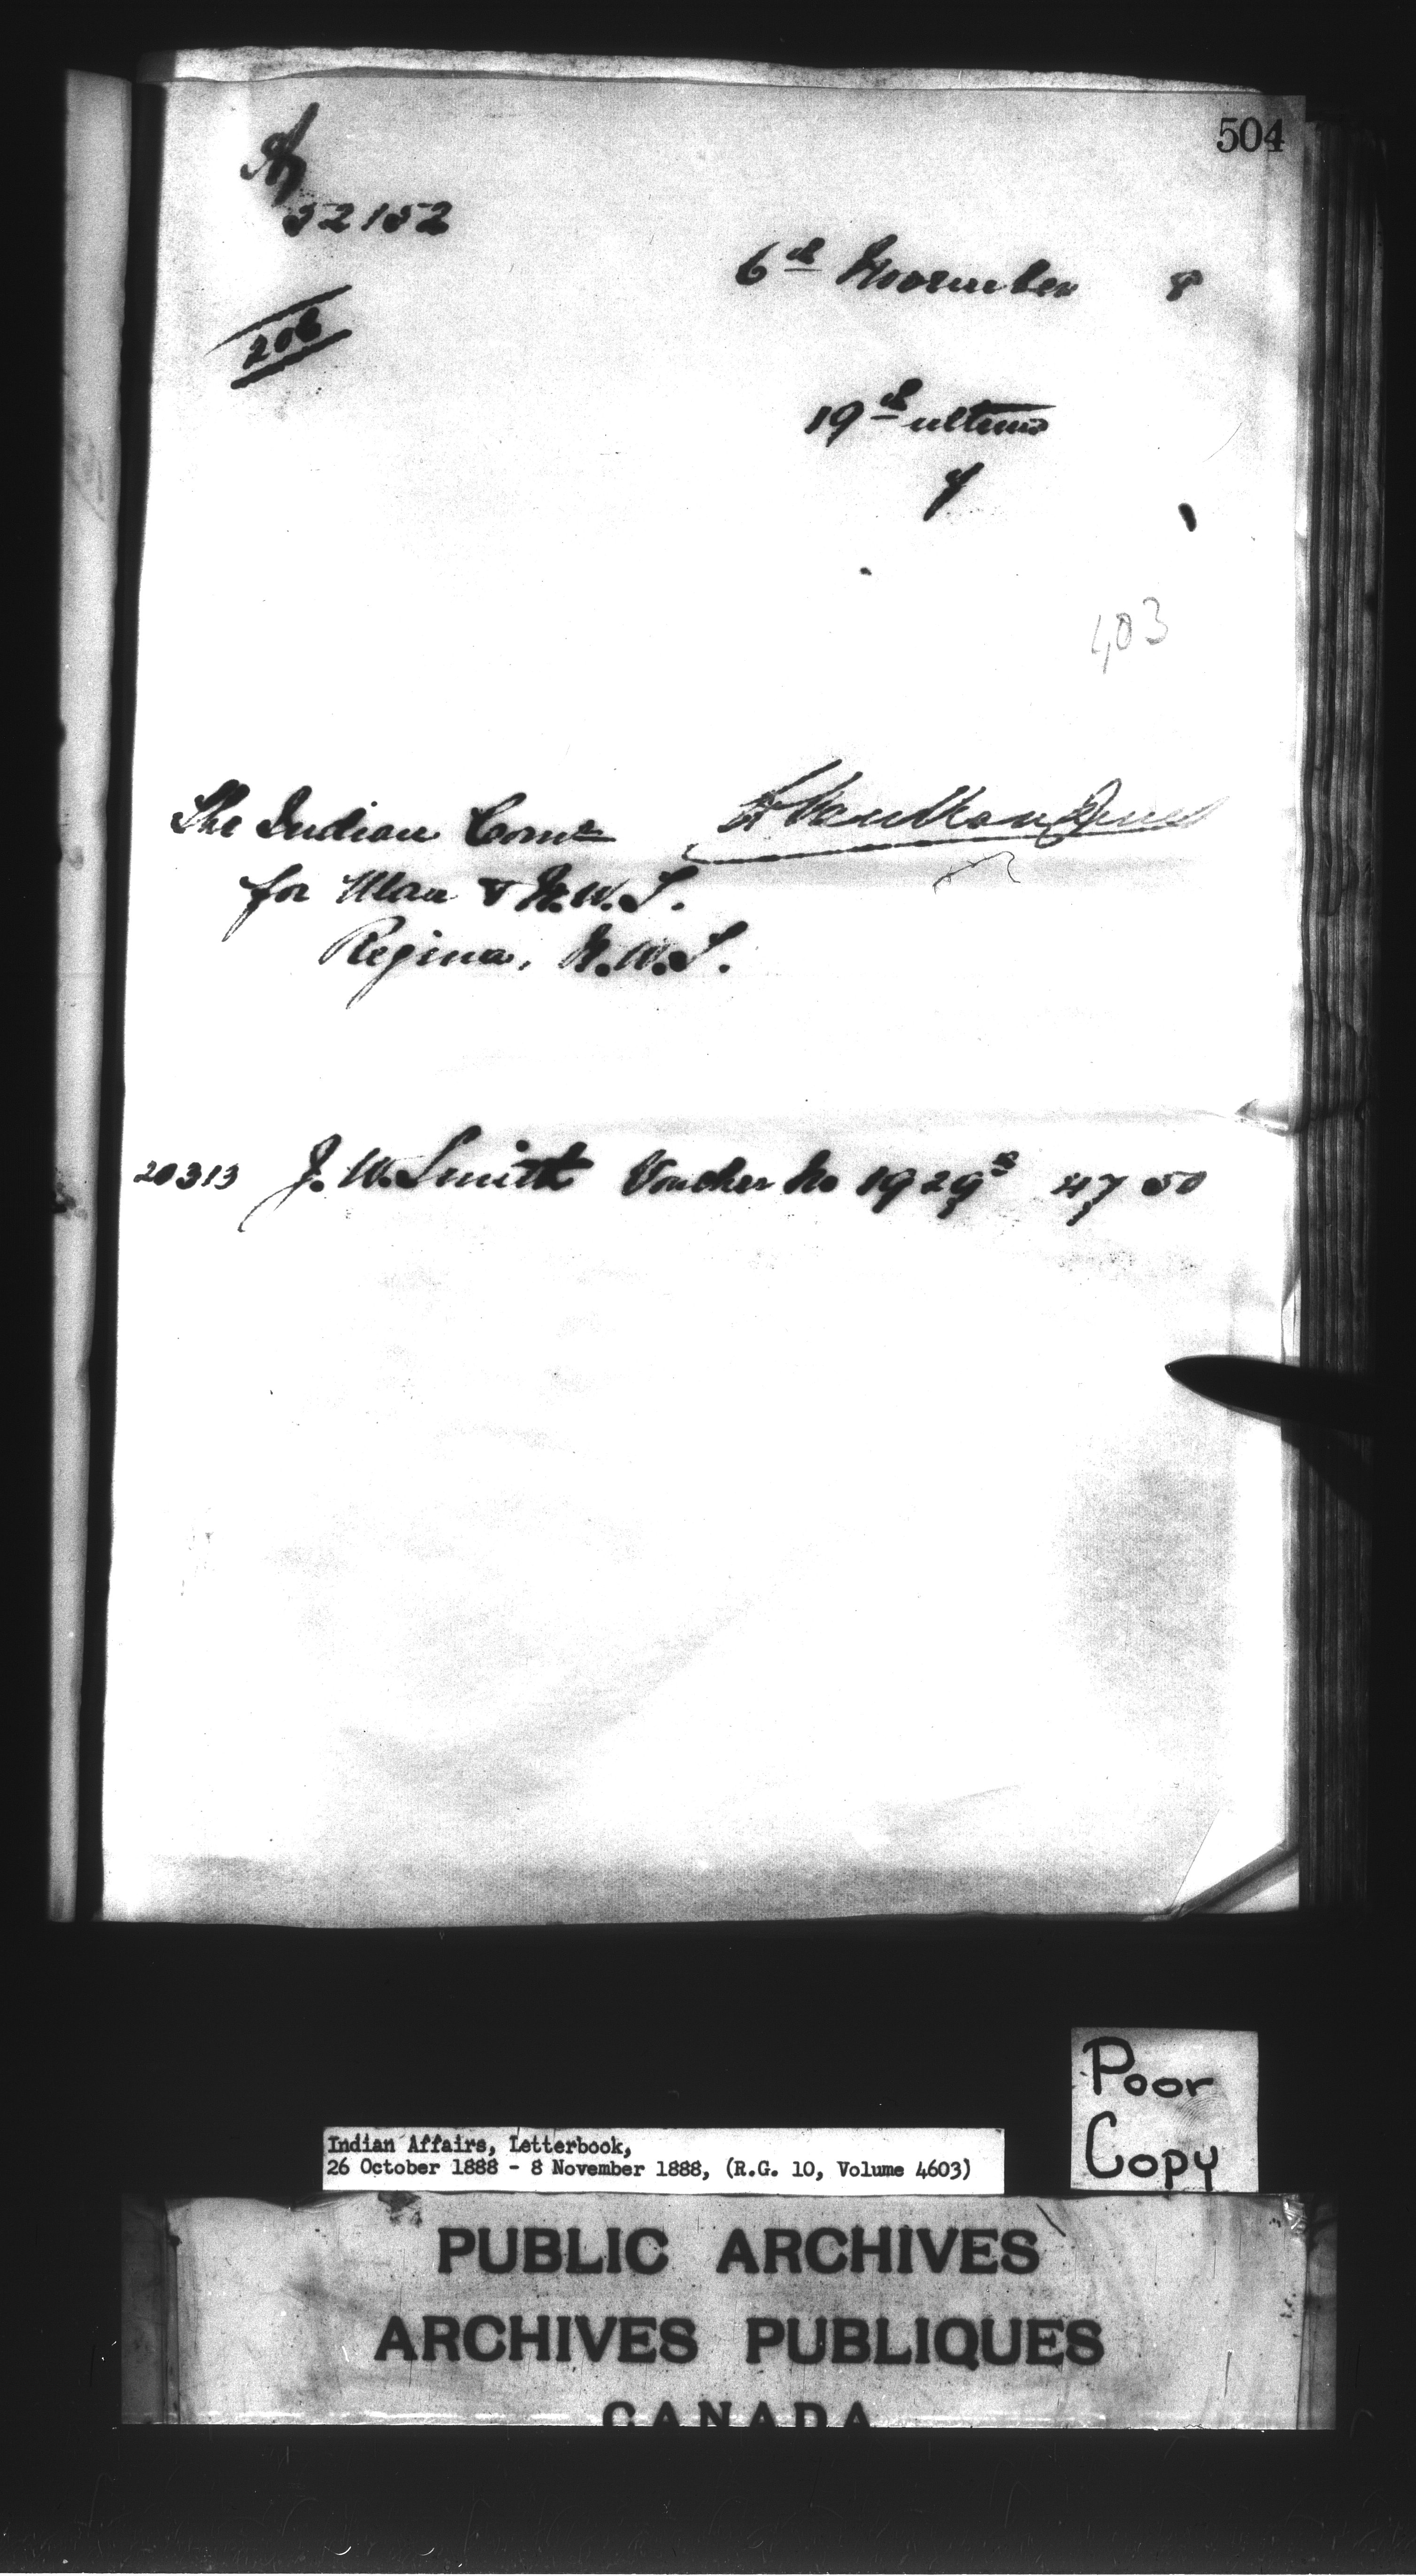 504
52152
6th November 8
206
19th ultimo
of
403
The Indian Comr
L. VanKoughnet
for Man & N.W.T.
Regina, N.W.T.
20313 J. W. Smith Voucher No 1929s 47 50
Poor
Copy
Indian Affairs, Letterbook,
26 October 1888 - 8 November 1888, (R.G. 10, Volume 4603)
PUBLIC ARCHIVES
ARCHIVES PUBLIQUES
CANADA